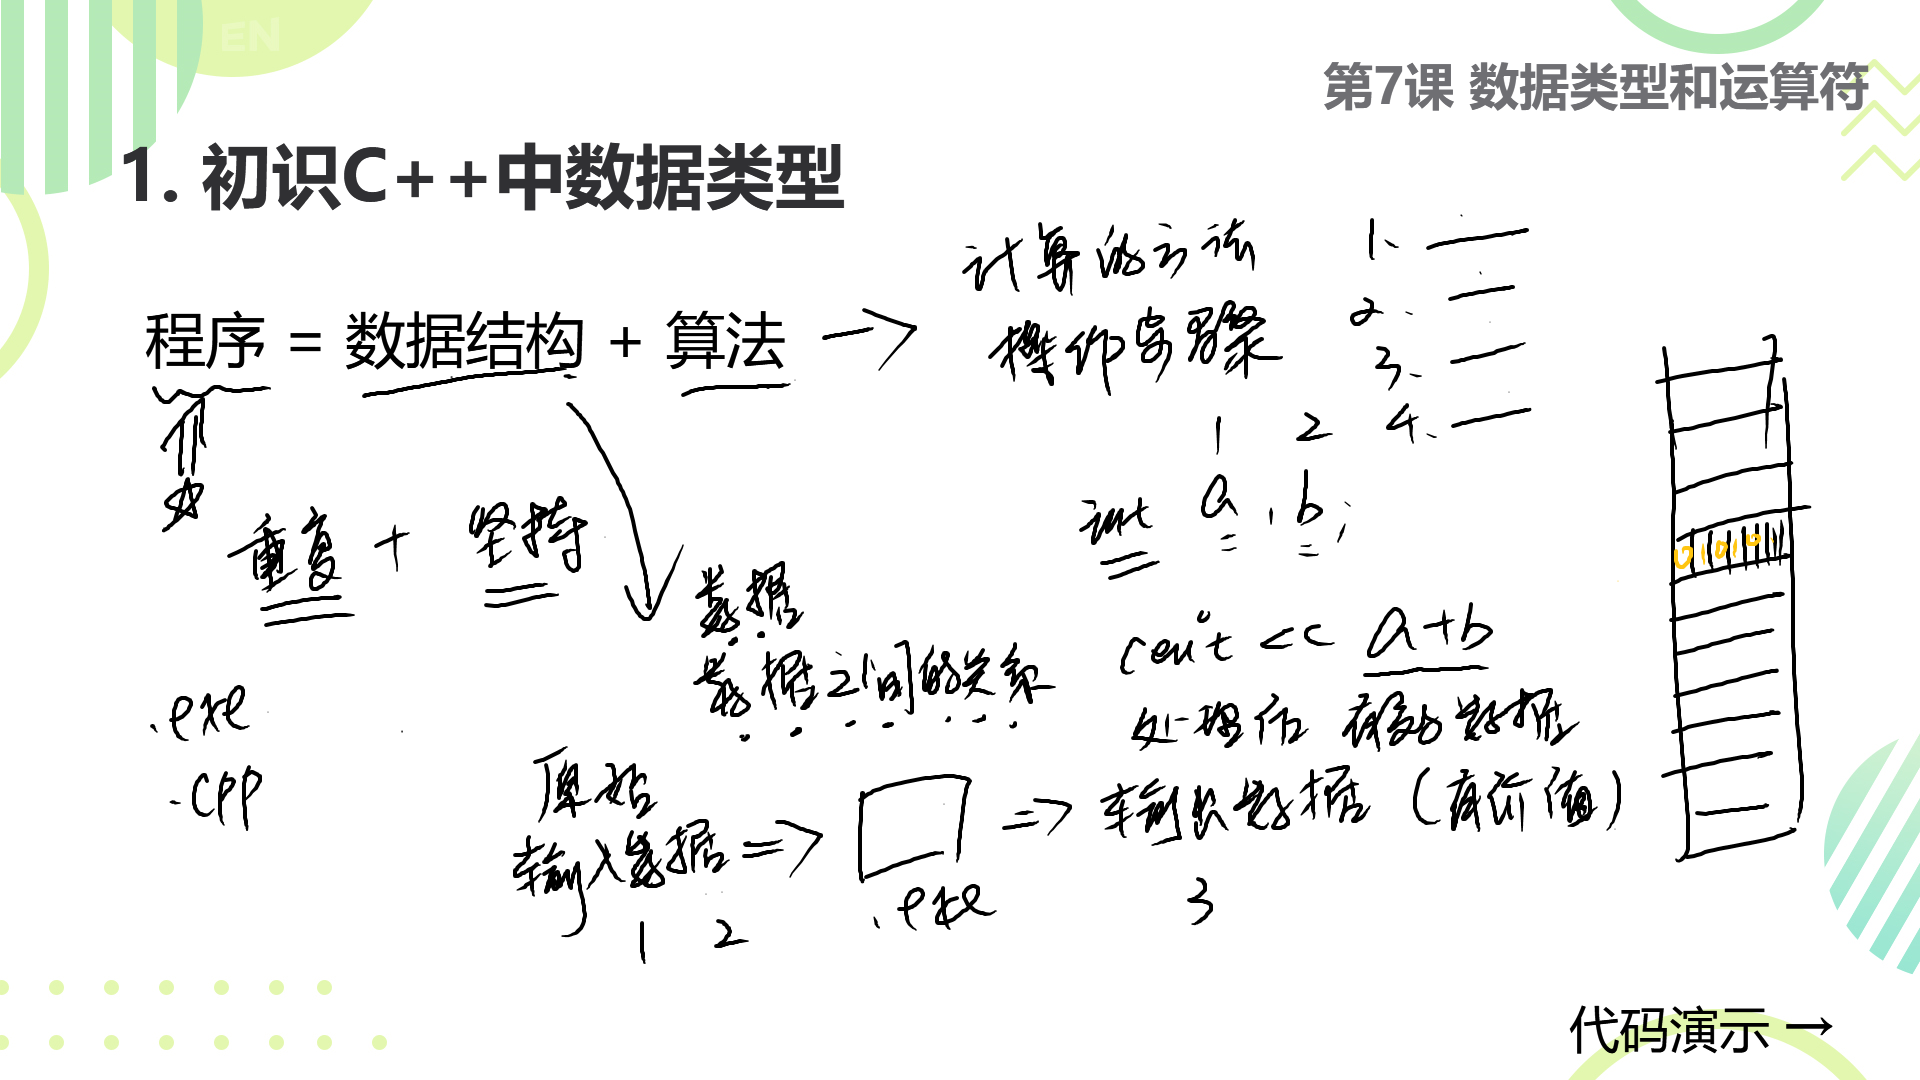 EN
第7课 数据类型和运算符
1. 初识C++中数据类型
计算的方法
操作步骤
1、
2、
3、
4、
程序 = 数据结构 + 算法
重复 + 坚持
1 2
int a , b ;
数据
数据之间的关系
cout << a+b
.exe
.cpp
处理后 有效数据
原始
输入数据 => => 输出数据 (有价值)
.exe
1 2
3
0 1 0 1 0 1
代码演示 →